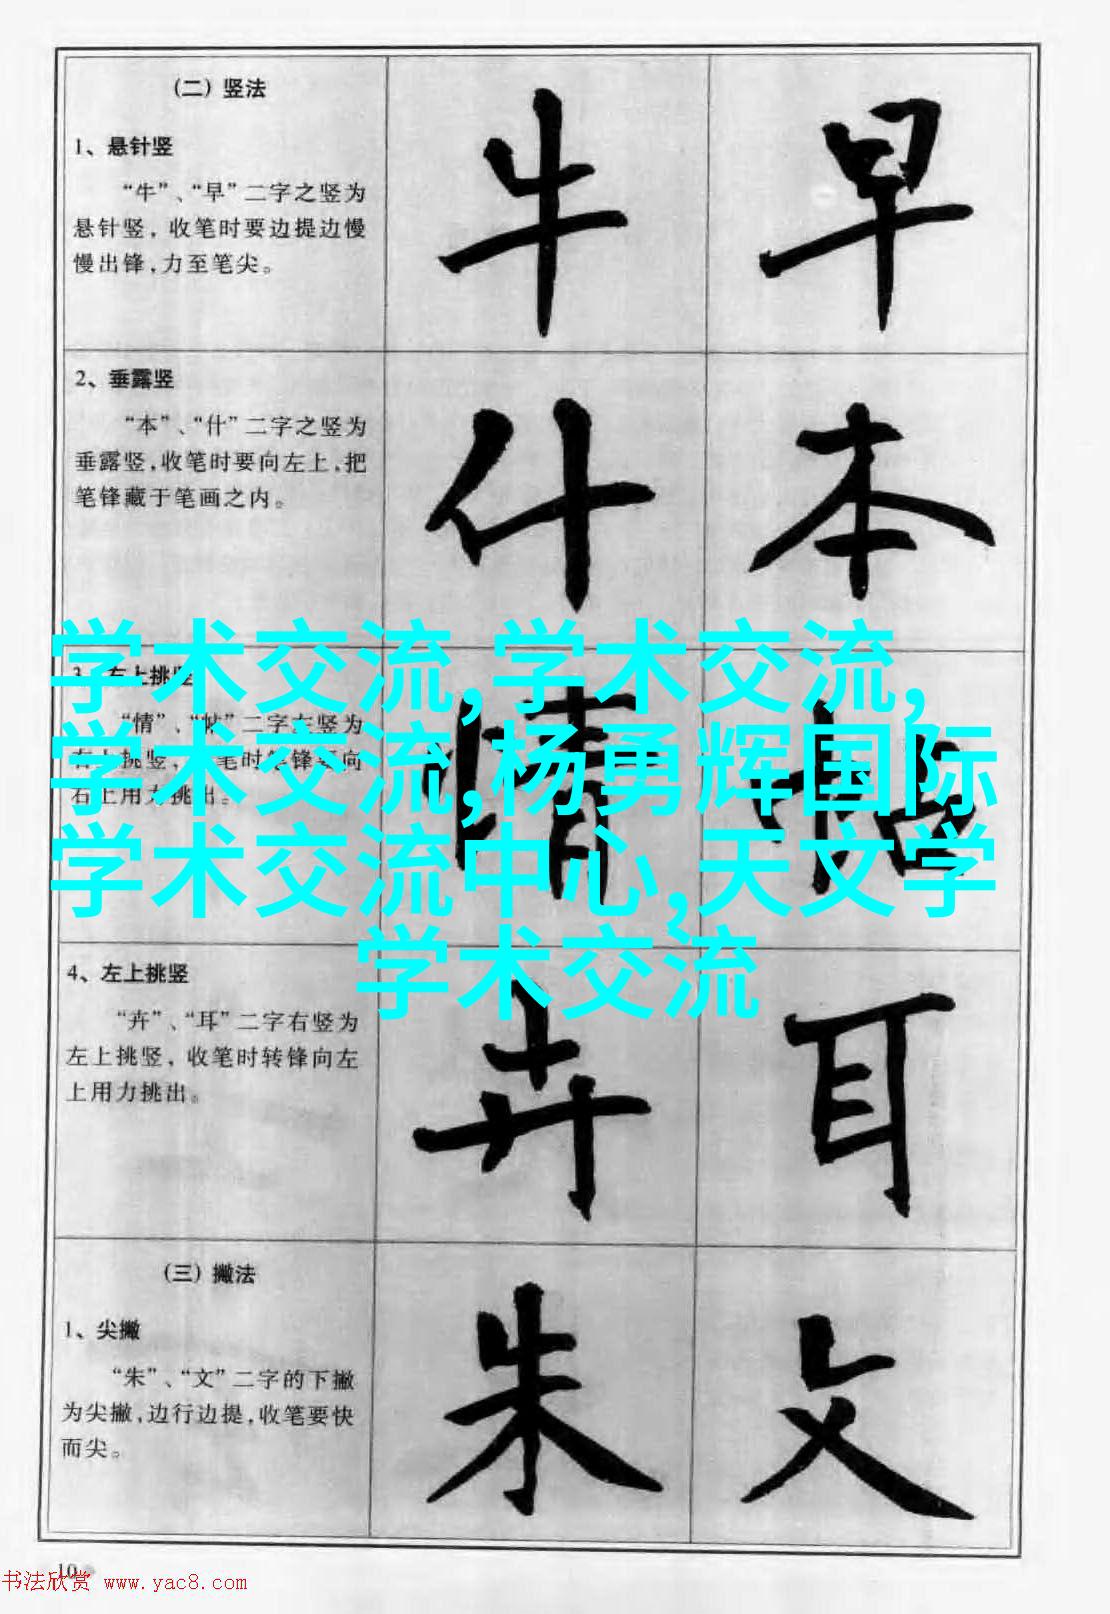 (二) 竖法
1、悬针竖
“牛”、“早”二字之竖为
悬针竖，收笔时要边提边慢
慢出锋，力至笔尖。
牛 早
2、垂露竖
“本”、“什”二字之竖为
垂露竖，收笔时要向左上，把
笔锋藏于笔画之内。
什 本
学术交流,学术交流,
学术交流,杨勇辉国际
学术交流中心,天文学
学术交流
3、右上挑竖
“情”、“帖”二字左竖为
右上挑竖，笔时 锋 向
右上用力挑出。
情 帖
4、左上挑竖
“卉”、“耳”二字右竖为
左上挑竖，收笔时转锋向左
上用力挑出。
卉 耳
(三) 撇法
1、尖撇
“朱”、“文”二字的下撇
为尖撇，边行边提，收笔要快
而尖。
朱 文
10
书法欣赏 www.yac8.com